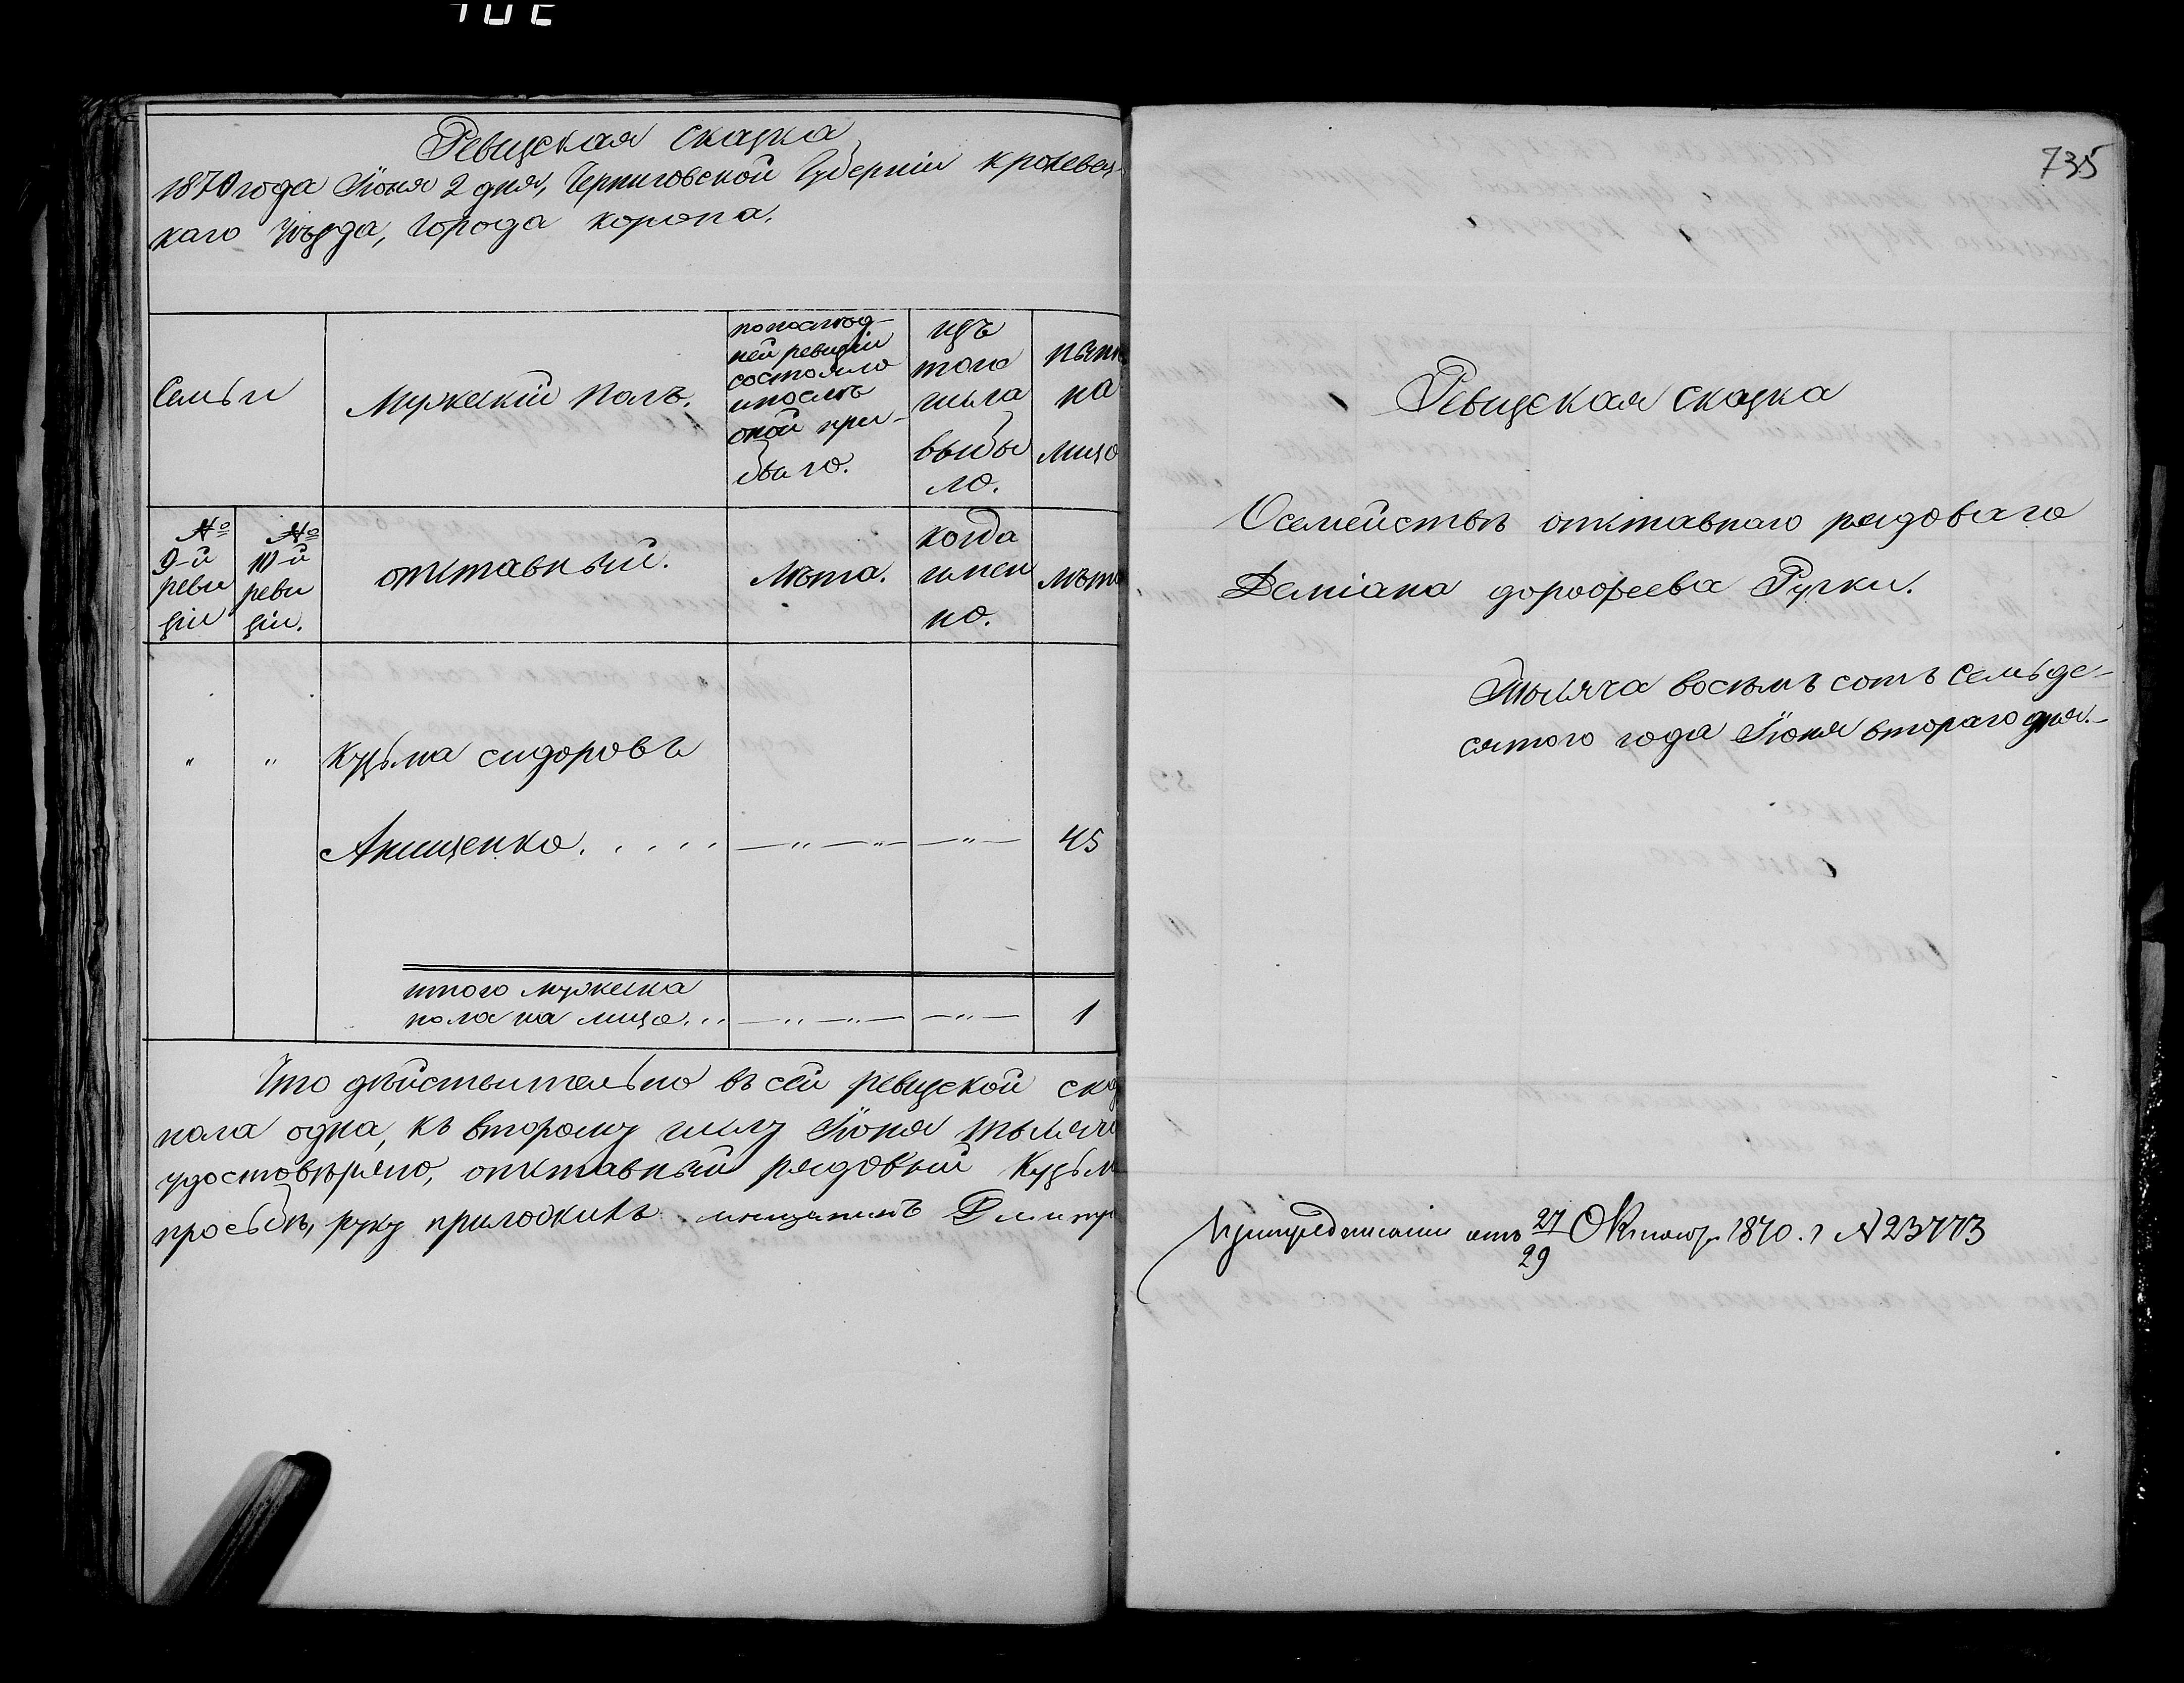 Ревизская сказка
1870 года Іюня 2 дня, Черниговской Губерніи кролевец-
каго уѣзда, города коропа.
Семьи
Мужескій Полъ.
по послѣд-
ней ревизіи
состояло
и послѣ
оной при-
было.
изъ
того
числа
выбы
ло.
нынѣ
на
лицо
№
9-й
реви
зіи
№
10-й
реви
зіи.
отставный.
Лѣта.
когда
имен
но.
Лѣта
" " Кузьма сидоровъ
Анищенко. . . . . —„—„— —„— 45
итого мужеска
пола на лицо. . . —„—„— —„— 1
Что дѣйствительно въ сей ревизской ска
пола одна, къ второму числу Іюня тысяча
удостовѣряю, отставный рядовый Кузьм
просьбѣ, руку приложилъ мещанинъ Дмитр
735
Ревизская сказка
О семействѣ отставнаго рядоваго
Деміана дорофеева Ручки.
Тысяча восемъ сотъ семьде-
сятого года Іюня втораго дня.
При предписаніи отъ 27/29 Октября 1870. г № 23773